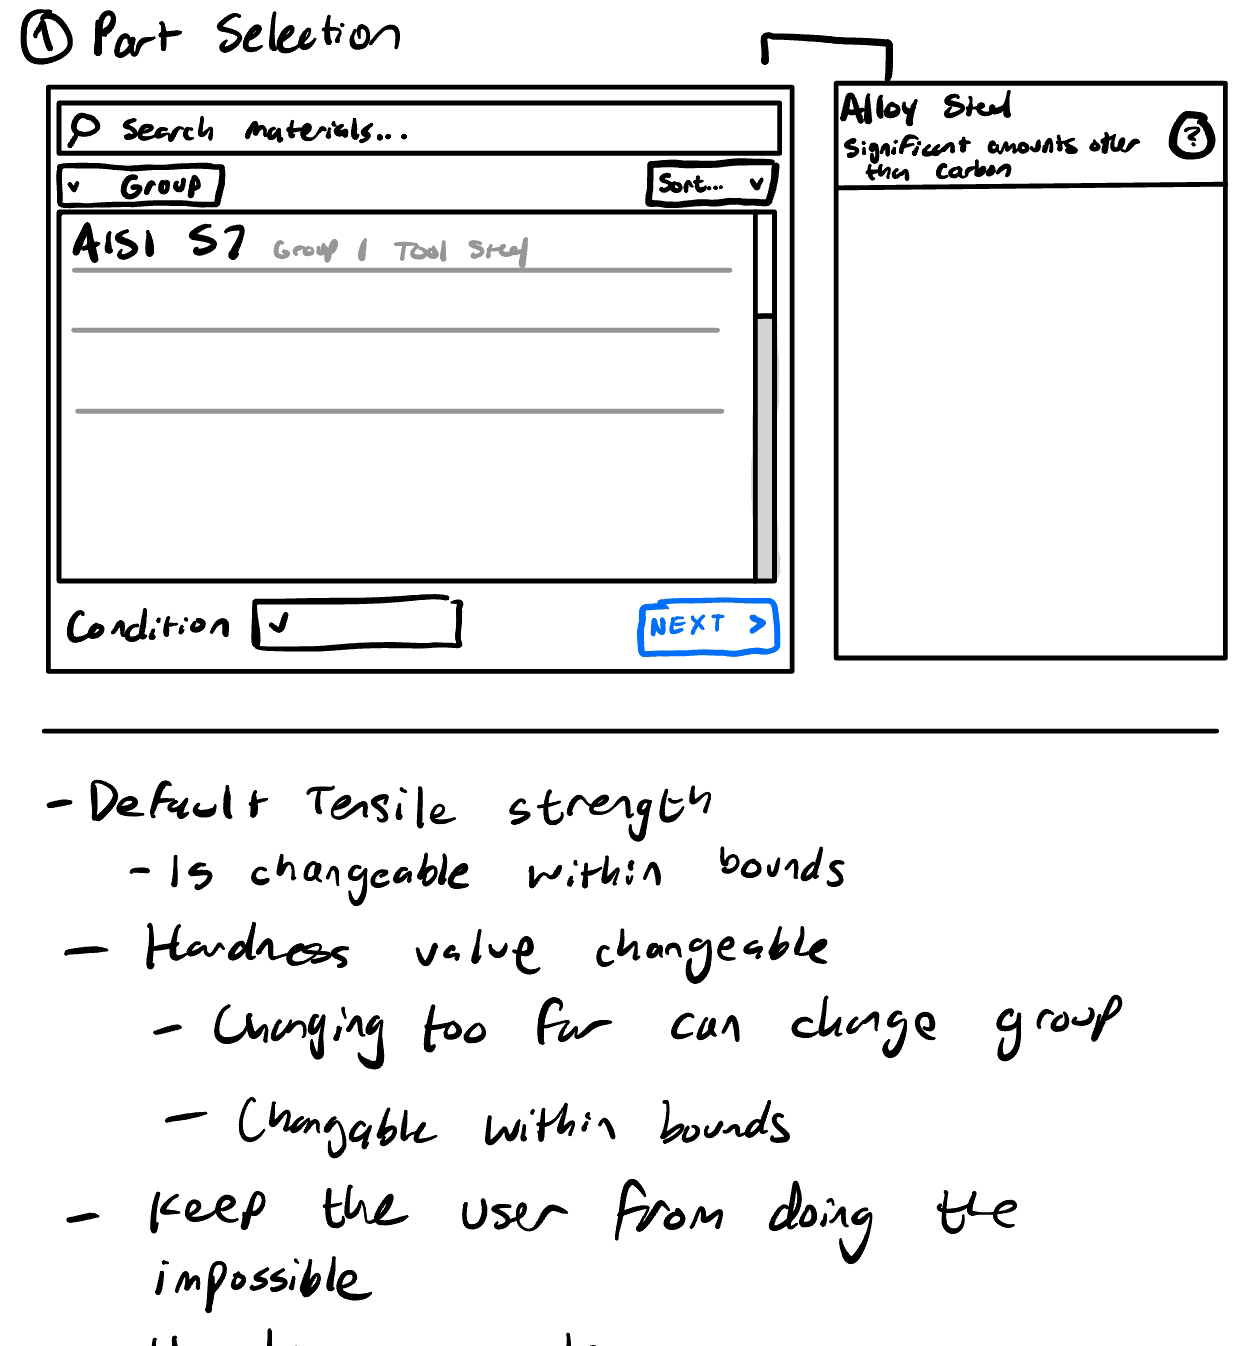 ① Part Selection
Search materials...
Group
Sort...
AISI S7 Group 1 Tool Steel
Condition
NEXT >
Alloy Steel
Significant amounts other
than Carbon
?
- Default Tensile strength
- Is changeable within bounds
- Hardness value changeable
- Changing too far can change group
- Changable within bounds
- Keep the user from doing the
impossible